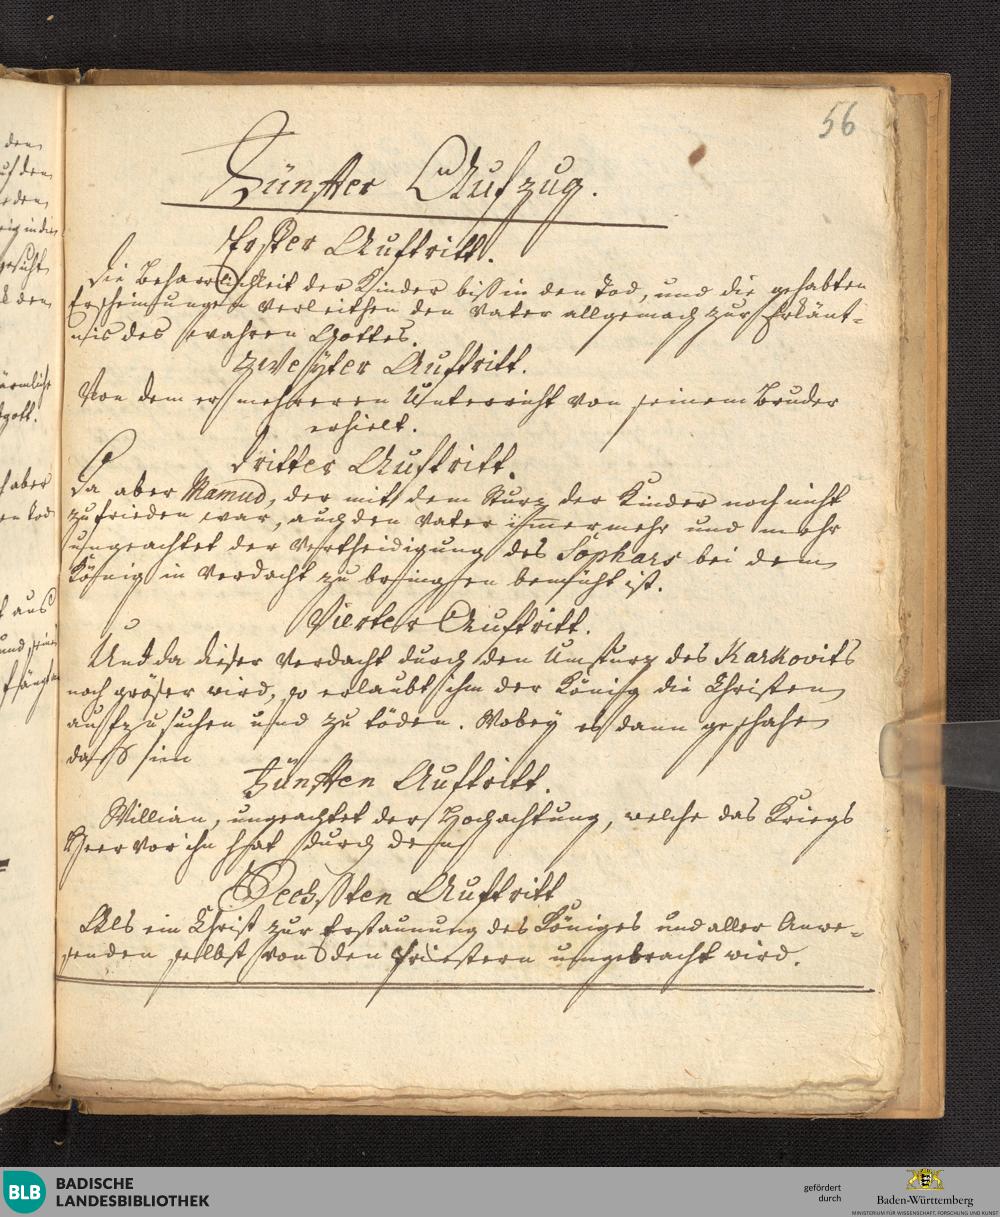 56
Fünfter Aufzug.
Erster Auftritt.
Die Beharrlichkeit der Kinder bis in den Tod, und die gehabten
Erscheinungen verleithen den Vater allgemach zur Erkänt-
nis des wahren Gottes.
Zweyter Auftritt.
Von dem er mehreren Unterricht von seinem Bruder
erhielt.
Dritter Auftritt.
Da aber Mamud, der mit dem Sturz der Kinder noch nicht
zufrieden war, auch den Vater immermehr und mehr
ungeachtet der Vertheidigung des Sophars bei dem
König in Verdacht zu bringen bemüht ist.
Vierter Auftritt.
Und da dieser Verdacht durch den Umsturz des Karkovits
noch gröser wird, so erlaubt ihm der König die Christen
aufzusuchen und zu töden. Wobey es dann geschahe
daß im
Fünften Auftritt.
Willian, ungeachtet der Hochachtung, welche das Kriegs
Heer vor ihn hat durch den
Sechsten Auftritt
Als ein Christ zur Erstaunung des Königes und aller Anwe-
senden selbst von den Priestern umgebracht wird.
den
auf den
gesicht
aber
aus
BLB BADISCHE
LANDESBIBLIOTHEK
gefördert
durch
Baden-Württemberg
MINISTERIUM FÜR WISSENSCHAFT, FORSCHUNG UND KUNST